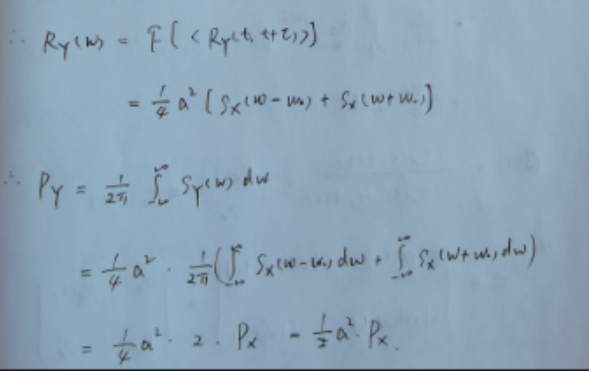 ∴ Ry(w) = F[<Ry(t, t+τ)>]
= 1/4 a² [Sx(w-w₀) + Sx(w+w₀)]
∴ Py = 1/2π ∫_{-∞}^{∞} Sy(w) dw
= 1/4 a² · 1/2π (∫_{-∞}^{∞} Sx(w-w₀) dw + ∫_{-∞}^{∞} Sx(w+w₀) dw)
= 1/4 a² · 2 · Px = 1/2 a² · Px.